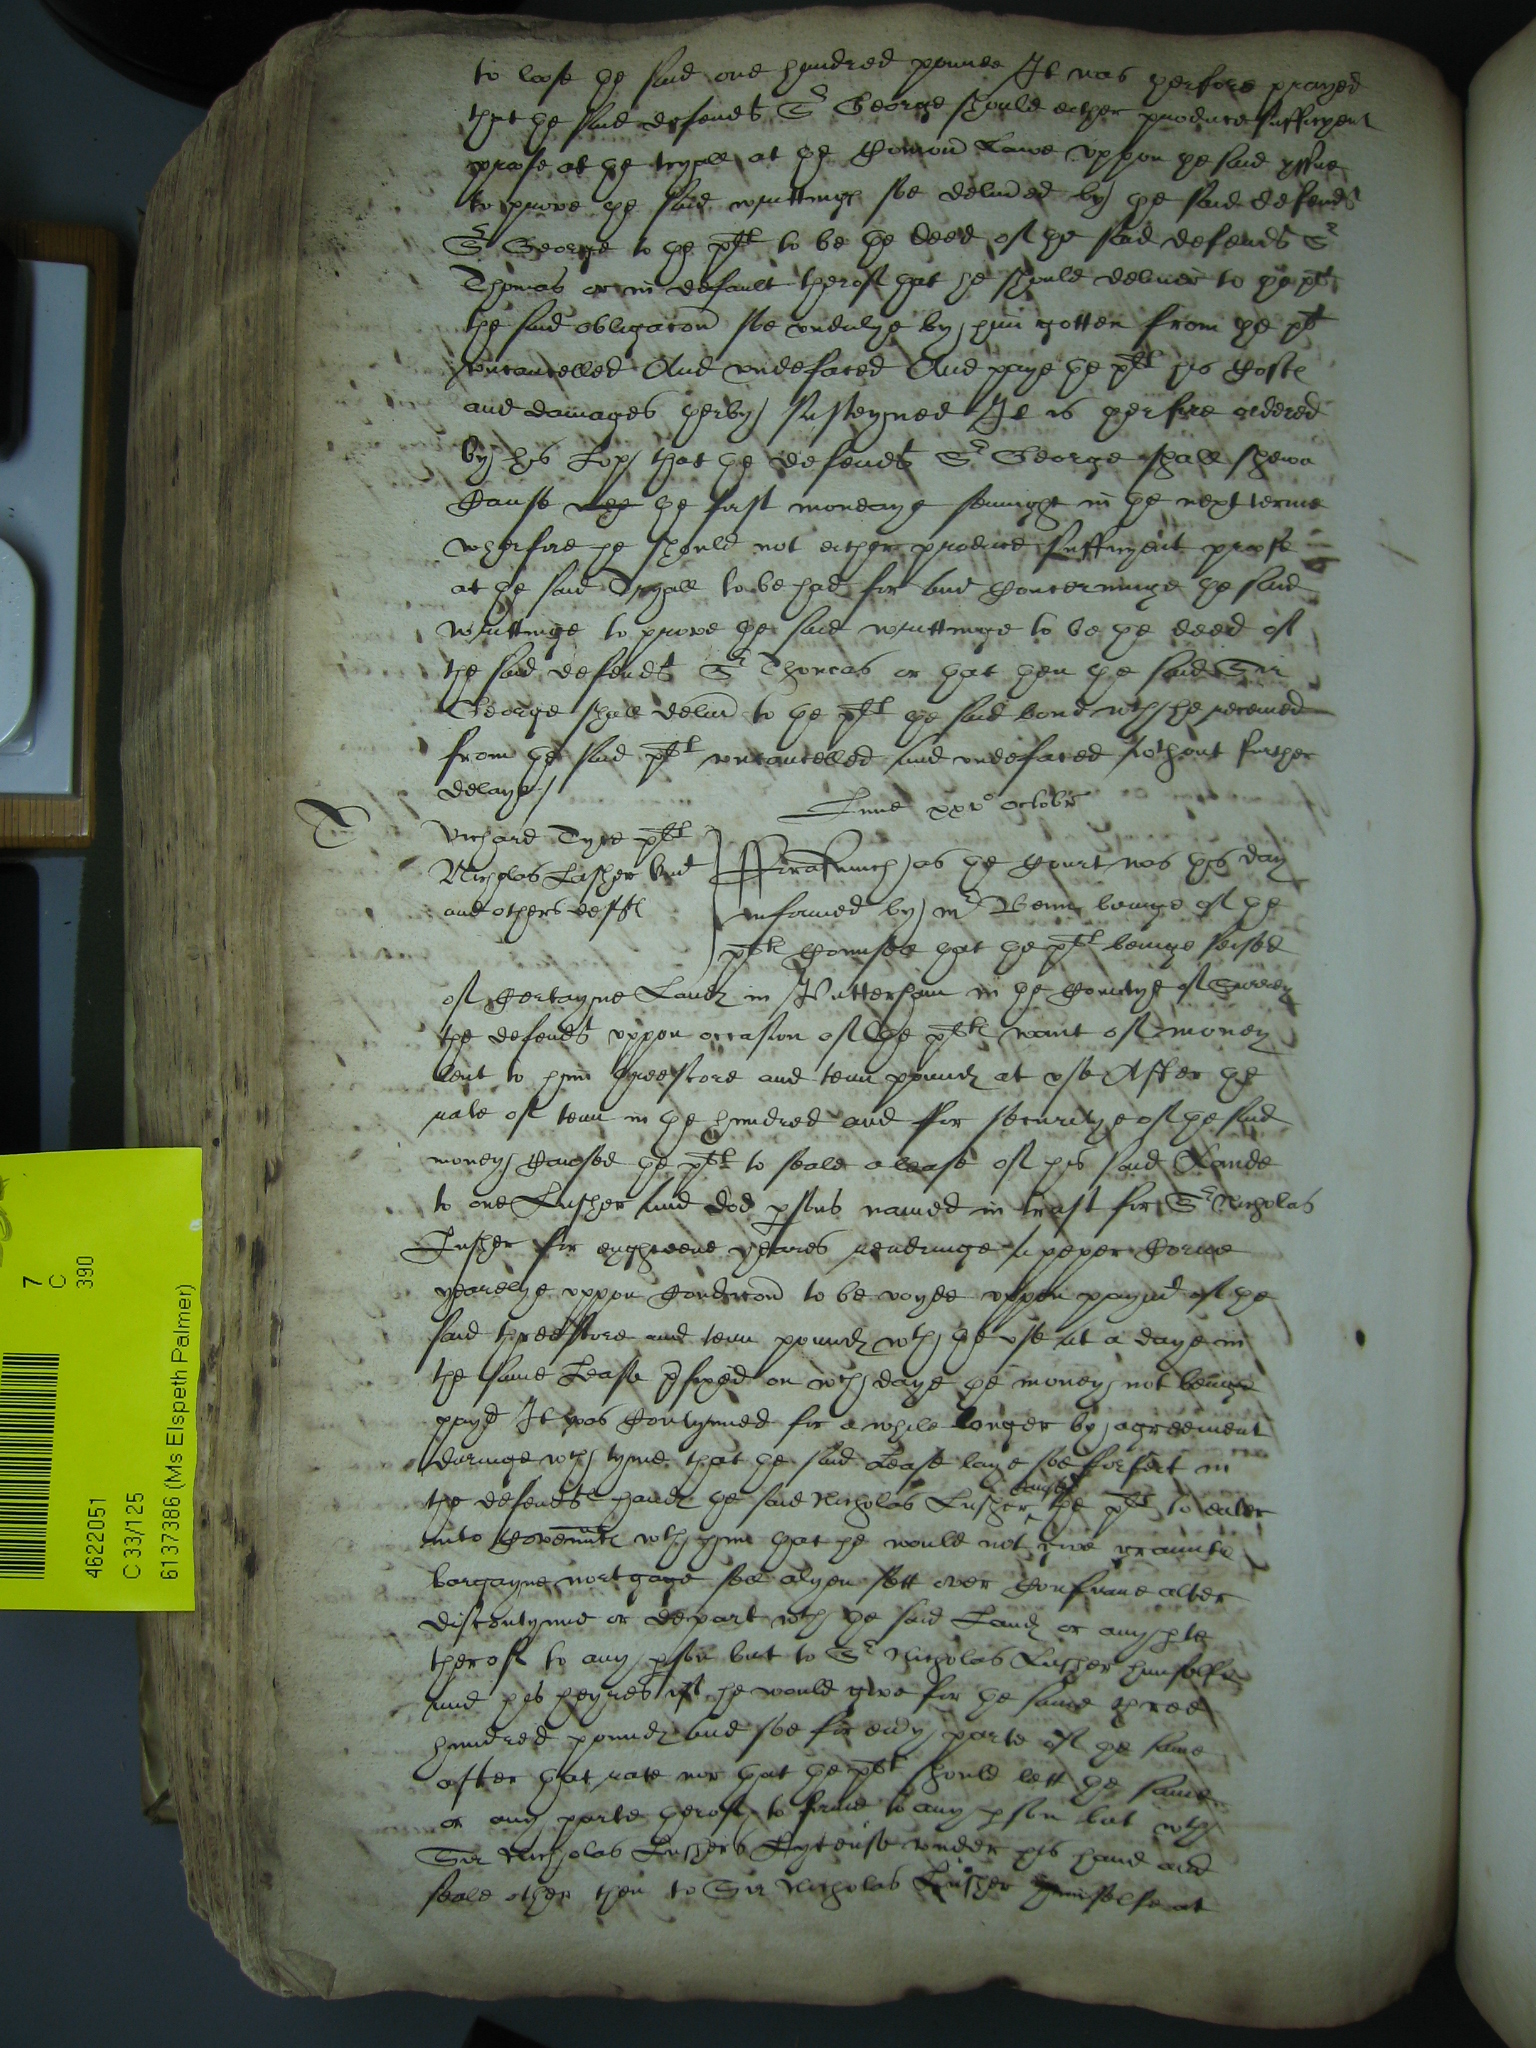 to loose the said one hundred pounde It was therfore prayed
that the said defendt Sr George should either produce sufficyent
proofe at the tryall at the Comon Lawe uppon the said yssue
to prove the said writtinge soe delivered by the said defendt
Sr George to the plt to be the deed of the said defendt Sr
Thomas or in default therof that he should deliver to the plt
the said obligacon soe undulye by him gotten from the plt
uncancelled And undefaced And paye the plt his Costs
and damages therby susteyned It is therfore ordered
by his Lopp that the defendt Sr George shall shewe
Cause the first mondaye sennight in the next terme
wherfore he should not either produce sufficyent proofe
at the said Tryall to be had for and Concerninge the said
writtinge to prove the said writtinge to be the deed of
the said defendt Sr Thomas or that then the said Sir
George shall deliver to the plt the said bond wch he receaved
from the said plt uncancelled and undefaced without further
delaye
Lune xxvo octobr
T
Richard Tyce plt
Nicholas Lusher knt
and others defts
Fforasmuch as the Court was this day
informed by mr Benn beinge of the
plts Counsell that the plt beinge seised
of Certayne Lands in Puttenham in the Countye of Surrey
the defendt uppon occasion of the plts want of money
lent to him threescore and tenn pounds at use After the
rate of tenn in the hundred and for securitye of the said
money Caused the plt to seale a lease of his said Lande
to one Lusher and Dod psons named in trust for Sr Nicholas
Lusher for eighteene yeares rendringe a peper Corne
yearelye uppon Condicon to be voyde uppon paymt of the
said threescore and tenn pounds wth the use at a daye in
the same Lease pfixed on wch daye the money not beinge
payd It was Contynued for a while longer by agreement
duringe wch tyme that the said Lease laye soe forfeit in
the defendts hands the said Nicholas Lusher caused the plt to enter
into Covennts wth him that he would not give graunte
bargayne mortgage sell alyen sett over Conveye alter
discontynue or depart wth the said Lands or any pte
therof to any pson but to Sr Nicholas Lusher himselfe
and his heyres yf he would give for the same three
hundred pounds and soe for every parte of the same
after that rate nor that the plt should lett the same
or any parte therof to ferme to any pson but wth
Sir Nicholas Lushers Lycense under his hand and
seale other then to Sir Nicholas Lusher himselfe at
7
C
390
4622051
C 33/125
6137386 (Ms Elspeth Palmer)